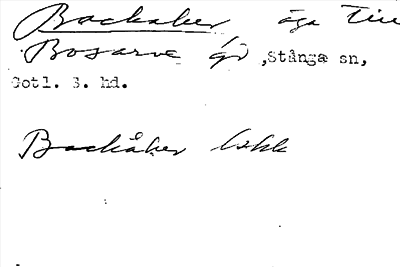 Backaker, äga till
Bosarve gd, Stånga sn,
Gotl. S. hd.
Backåker